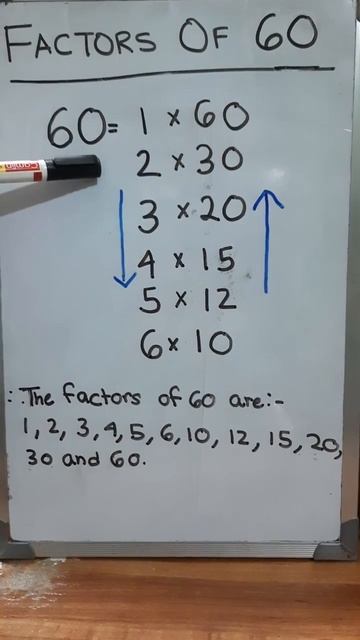 FACTORS OF 60
60= 1 × 60
2 × 30
3 × 20
4 × 15
5 × 12
6 × 10
∴ The factors of 60 are:-
1, 2, 3, 4, 5, 6, 10, 12, 15, 20,
30 and 60.